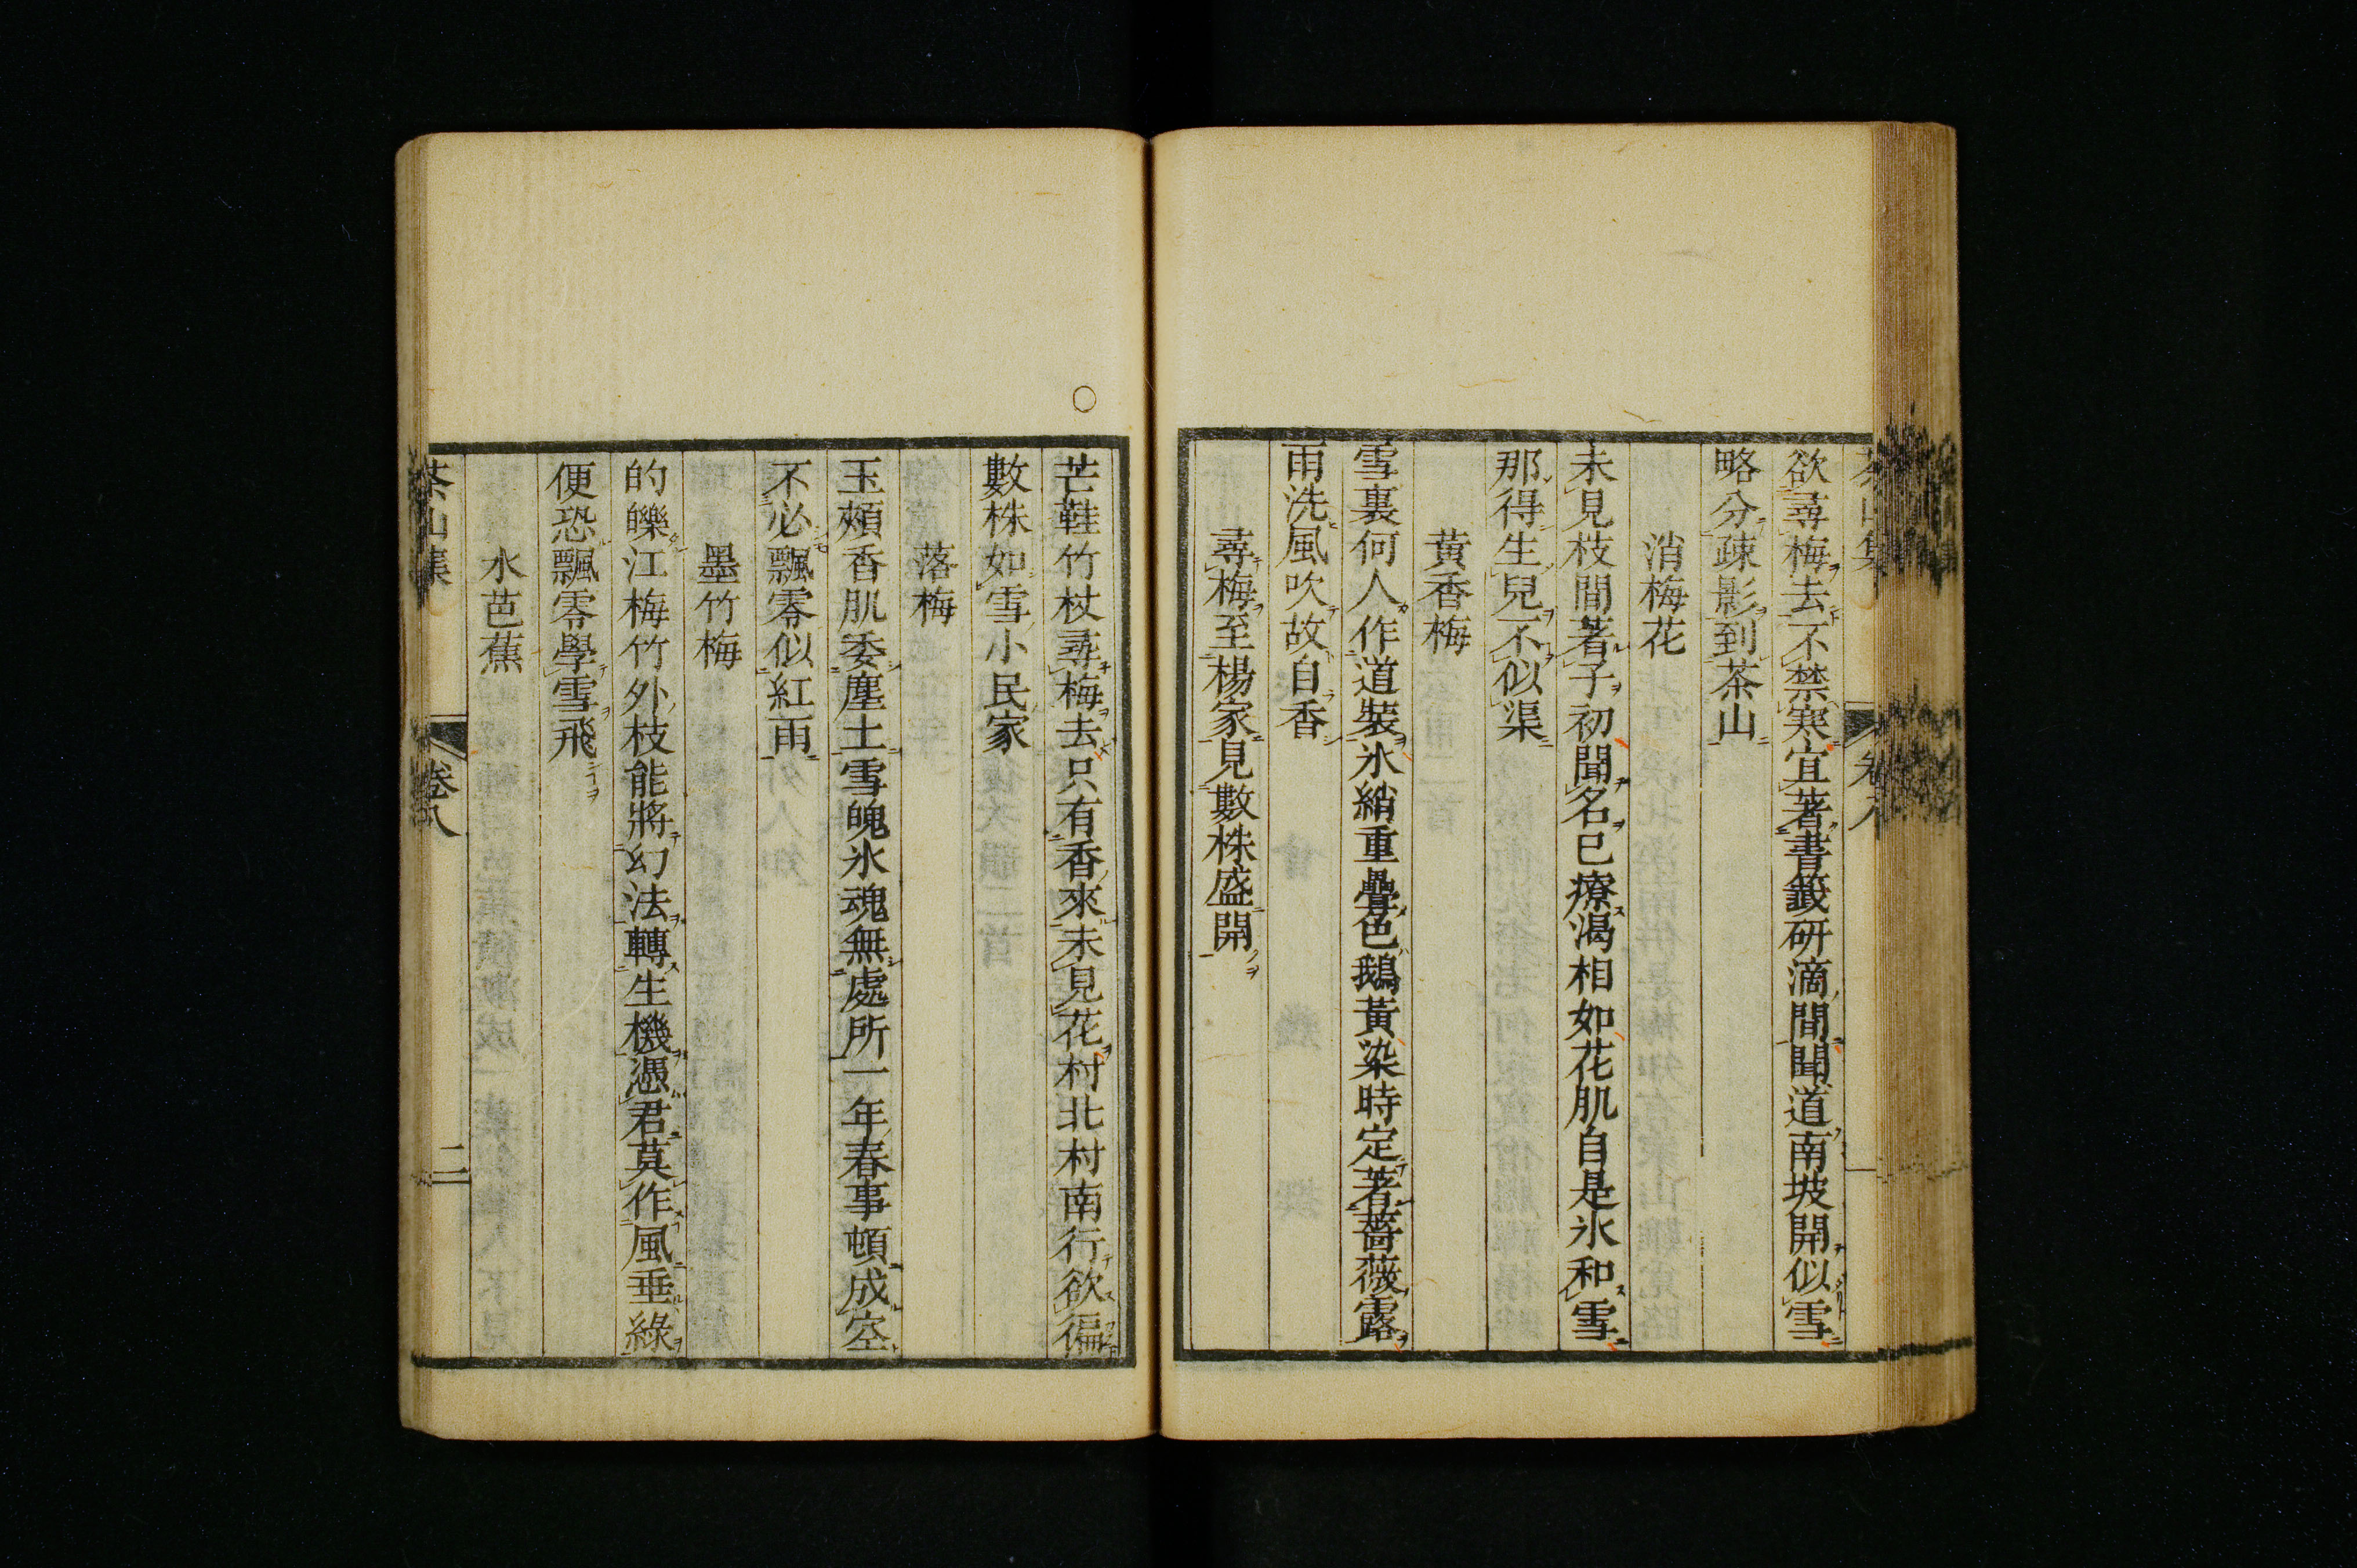 欲尋梅去不禁寒宜著書籤研滴間聞道南坡開似雪
略分疎影到茶山
消梅花
未見枝間著子初聞名已療渴相如花肌自是氷和雪
那得生兒不似渠
黃香梅
雪裏何人作道裝氷綃重疊色鵝黃染時定著薔薇露
雨洗風吹故自香
尋梅至楊家見數株盛開
芒鞋竹杖尋梅去只有香來未見花村北村南行欲徧
數株如雪小民家
落梅
玉頰香肌委塵土雪魄氷魂無處所一年春事頓成空
不必飄零似紅雨
墨竹梅
的皪江梅竹外枝能將幻法轉生機憑君莫作風垂綠
便恐飄零學雪飛
水芭蕉
茶山集 卷八 二